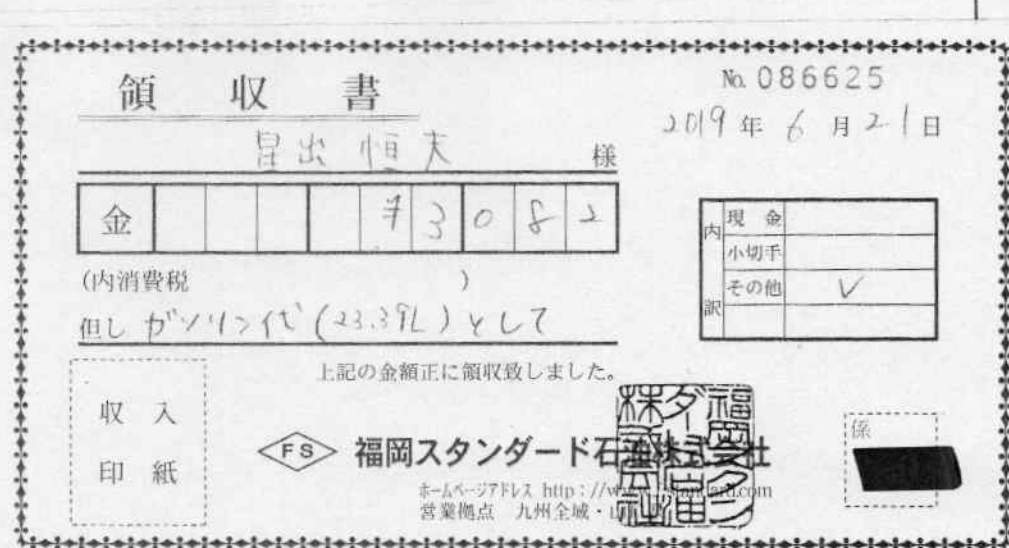 領収書
No. 086625
2019年6月21日
星出 恒夫 様
金 ¥3082
(内消費税 )
但し ガソリン代 (23.39L) として
内訳
現金
小切手
その他 ✓
上記の金額正に領収致しました。
収入
印紙
FS 福岡スタンダード石油株式会社
ホームページアドレス http://www
営業拠点 九州全域・山
係